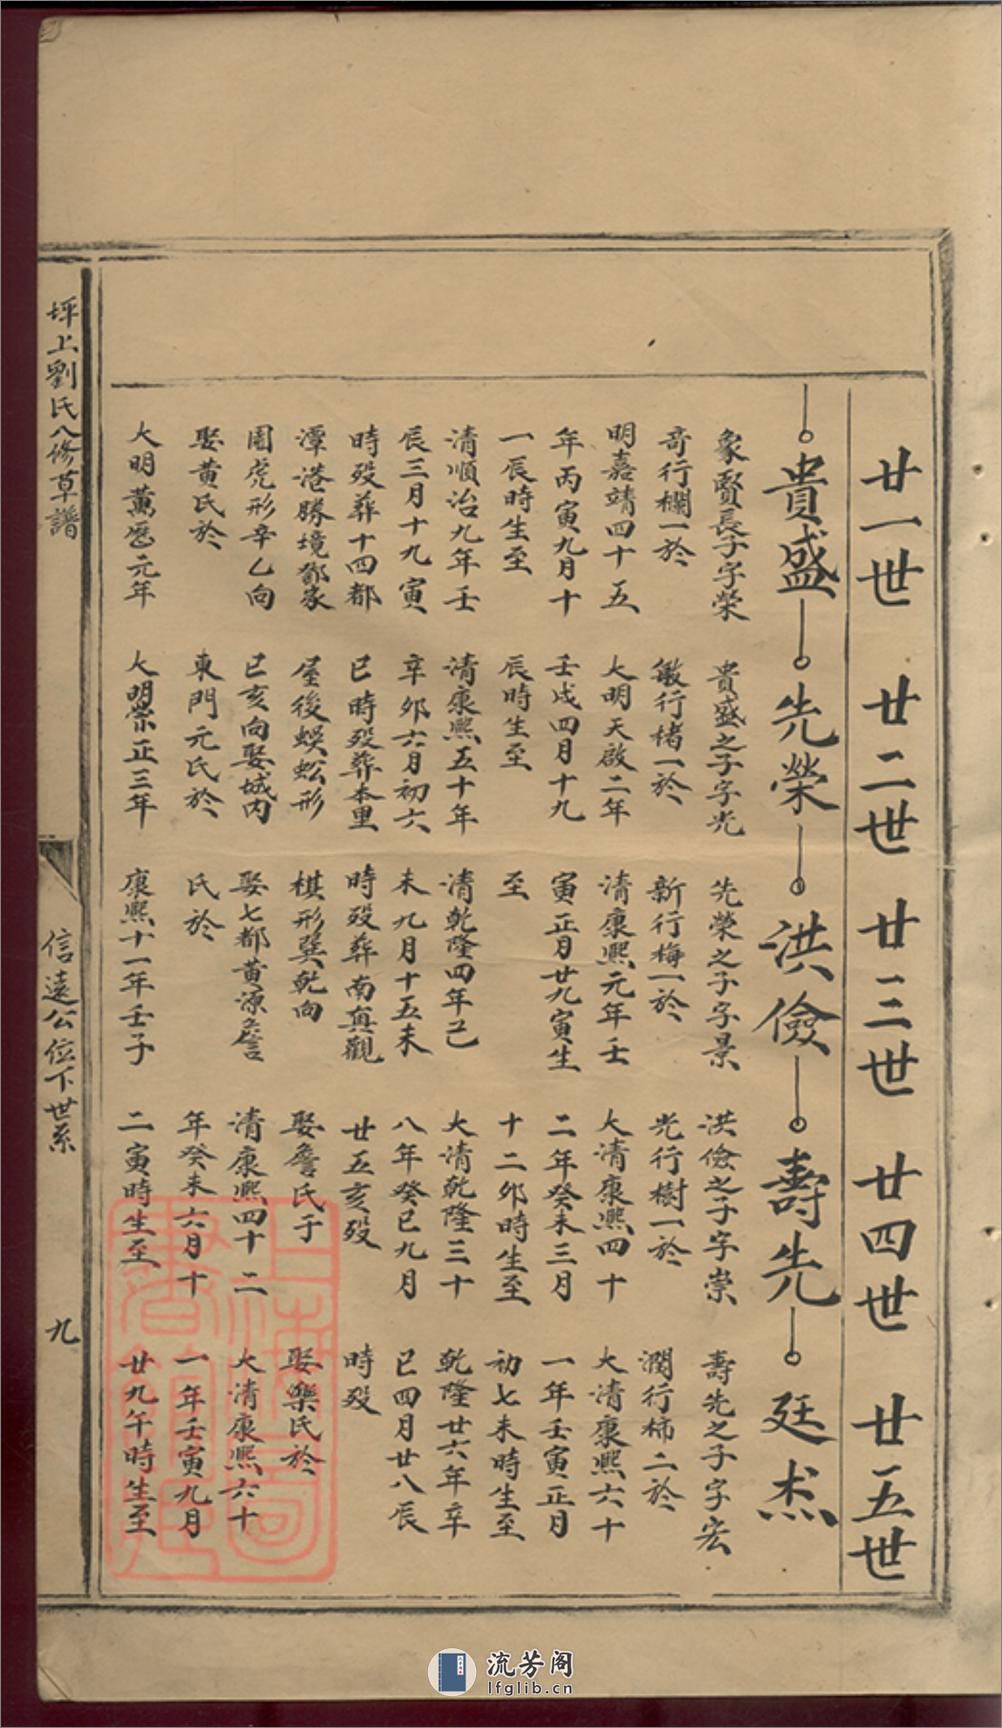 廿一世 廿二世 廿三世 廿四世 廿五世
貴盛 先榮 洪儉 壽先 廷杰
象賢長子字榮
奇行欄一於
明嘉靖四十五
年丙寅九月十
一辰時生至
清順治九年壬
辰三月十九寅
時殁葬十四都
潭港勝境鄒家
園虎形辛乙向
娶黃氏於
大明萬厯元年
貴盛之子字光
敏行楮一於
大明天啟二年
壬戌四月十九
辰時生至
清康熙五十年
辛卯六月初六
巳時殁葬本里
屋後蜈蚣形
巳亥向娶城内
東門元氏於
大明崇正三年
先榮之子字景
新行梅一於
清康熙元年壬
寅正月廿九寅生
至
清乾隆四年己
未九月十五未
時殁葬南真觀
棋形巽乾向
娶七都黃源詹
氏於
康熙十一年壬子
洪儉之子字崇
光行樹一於
大清康熙四十
二年癸未三月
十二卯時生至
大清乾隆三十
八年癸巳九月
廿五亥殁
娶詹氏于
清康熙四十二
年癸未六月十
二寅時生至
壽先之子字宏
潤行柿二於
大清康熙六十
一年壬寅正月
初七未時生至
乾隆廿六年辛
巳四月廿八辰
時殁
娶樂氏於
大清康熙六十
一年壬寅九月
廿九午時生至
坪上劉氏八修草譜
信遠公位下世系
九
上海圖書館藏
流芳阁
lfglib.cn